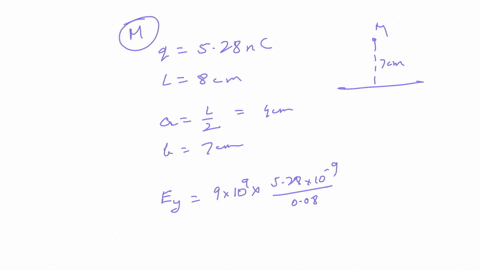 M
q = 5.28 nC
L = 8 cm
a = L/2 = 4cm
b = 7cm
E_y = 9 × 10^9 × (5.28 × 10^-9)/0.08
M
7cm